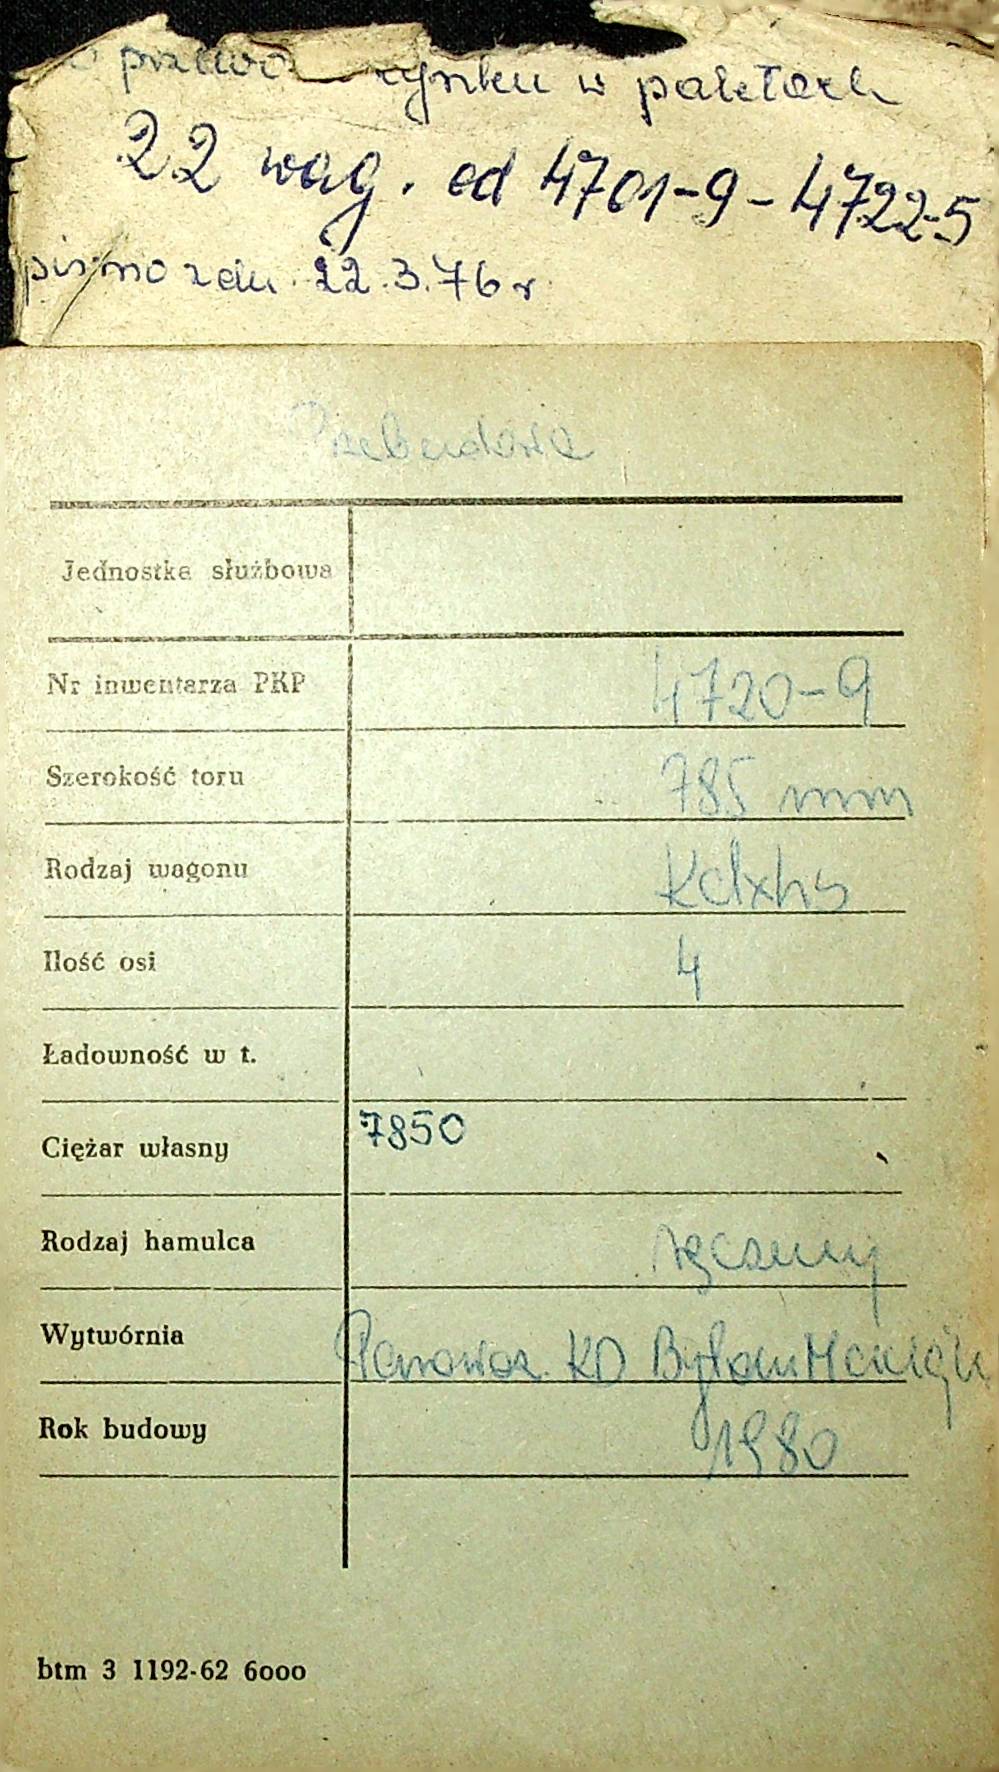 o przewoz cynku w paletach
22 wag. od 4701-9 - 4722-5
pismo z dn. 22.3.76 r
Przebudowa
Jednostka służbowa
Nr inwentarza PKP 4720-9
Szerokość toru 785 mm
Rodzaj wagonu Kdxhs
Ilość osi 4
Ładowność w t.
Ciężar własny 7850
Rodzaj hamulca ręczny
Wytwórnia KD Bytom
Rok budowy 1980
btm 3 1192-62 6000